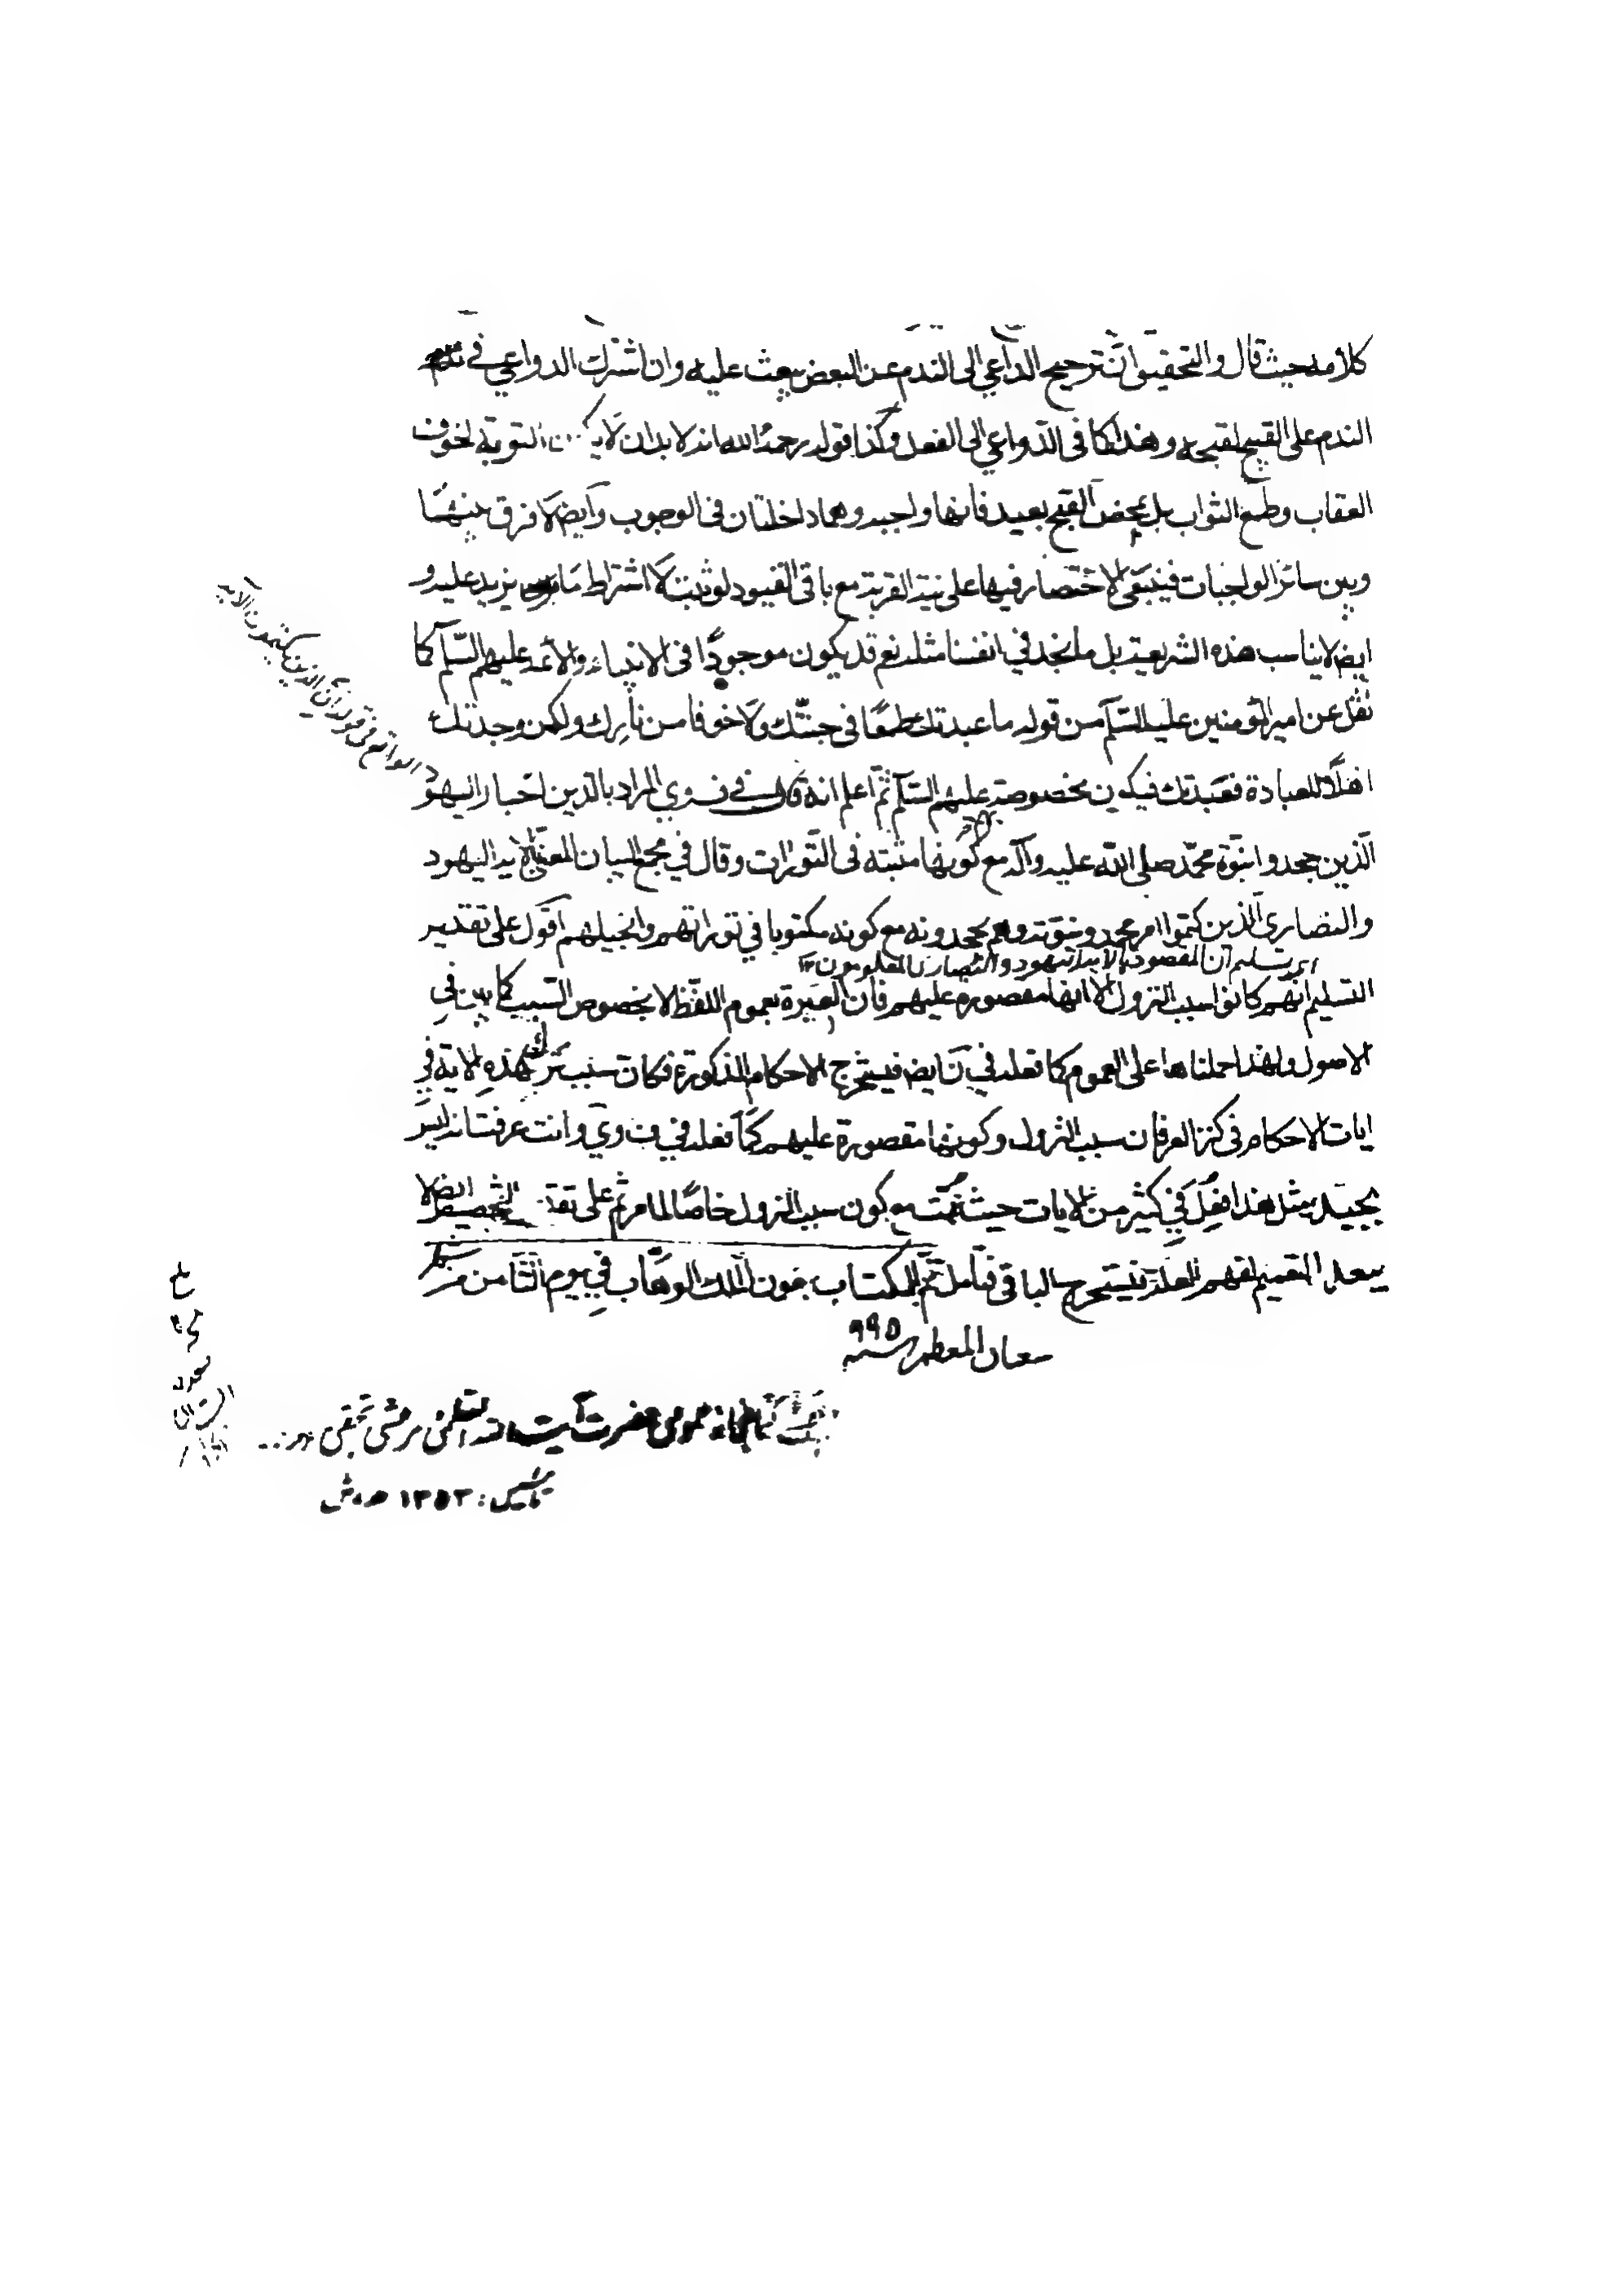 كلامه حيث قال والتحقيق ان ترجيح الداعي الى الندم عن البعض يبعث عليه وان اشترك الدواعي في
الندم على القبيح لقبحه وهذا كما في الدواعي الى الفعل وكذا قوله رحمه الله انه لا بد ان لا التوبة لخوف
العقاب وطمع الثواب بل لمحض القبح بعيد فانها واجبه وهما داخلتان في الوجوب وايض لا فرق بينهما
وبين سائر الواجبات فينبغي الاختصار فيها على نية القربة مع باقي القيود لو ثبت لا اشتراط ما يزيد عليه و
ايض لا يناسب هذه الشريعة بل ما نجد في انفسنا مثله نعم قد يكون موجودًا في الانبياء والائمه عليهم السلم كما
نقل عن امير المؤمنين عليه السلم من قوله ما عبدتك طمعًا في جنتك ولا خوفا من نارك ولكن وجدتك
اهلًا للعبادة فعبدتك فيكون مخصوصة عليهم السلم ثم اعلم انه قال في ف وي المراد بالذين احبار اليهود
الواقع في قوله ان الذين يكتمون الآية
الذين جحدوا نبوة محمد صلى الله عليه وآله مع كونها مثبته في التورات وقال في مجمع البيان المعنى بالاية اليهود
والنصارى الذين كتموا امر محمد ونبوته وهم يجحدونه مع كونه مكتوبا في توراتهم وانجيلهم اقول على تقدير
تسليم ان المقصود بالآية اليهود والنصارى المعلومون
التسليم انهم كانوا سبب النزول لا انها مقصورة عليهم فان العبرة بعموم اللفظ لا بخصوص السبب كما بين في
الاصول ولهذا حملناها على العموم كما فعله في ن ايض فيستخرج الاحكام المذكورة فكان سبب ترك هذه الاية في
ايات الاحكام في كنز العرفان سبب النزول وكونها مقصورة عليهم كما فعله في ف وي وانت عرفت انه ليس
بجيد بمثل هذا فعل في كثير من الايات حيث عممت مع كون سبب النزول خاصًا لما مر ثم على التخصيص ايض لا
يبعد التعميم لفهم العلة فيستخرج الباقي فتامل تم الكتاب بعون الملك الوهاب في يوم الثامن من شهر
شعبان المعظم سنة ٩٩٥
كتابخانه عمومى حضرت آيت الله العظمى مرعشى نجفى
تاسيس: ١٣٥٣ ه.ش